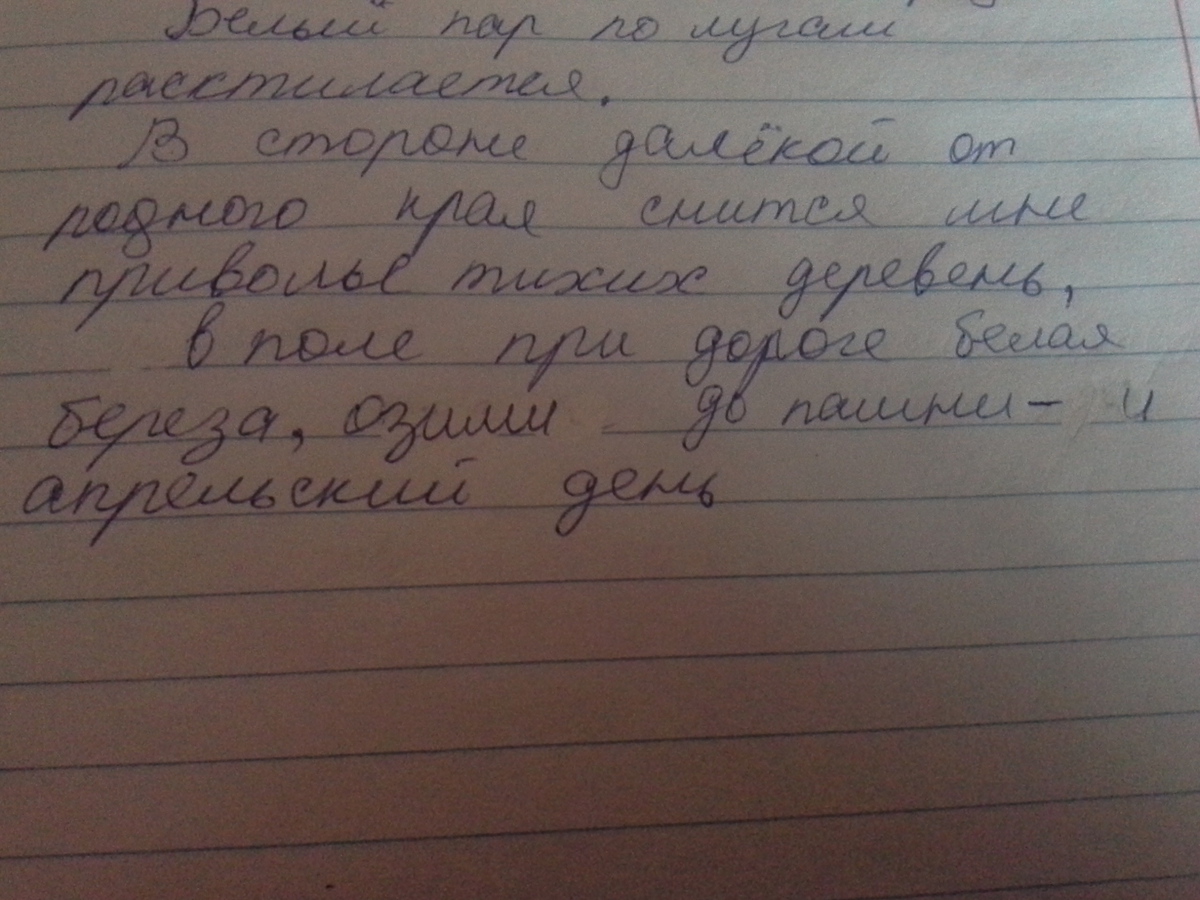 Белый пар по лугам
расстилается.
В стороне далёкой от
родного края снится мне
приволье тихих деревень,
в поле при дороге белая
береза, озими до пашни - и
апрельский день